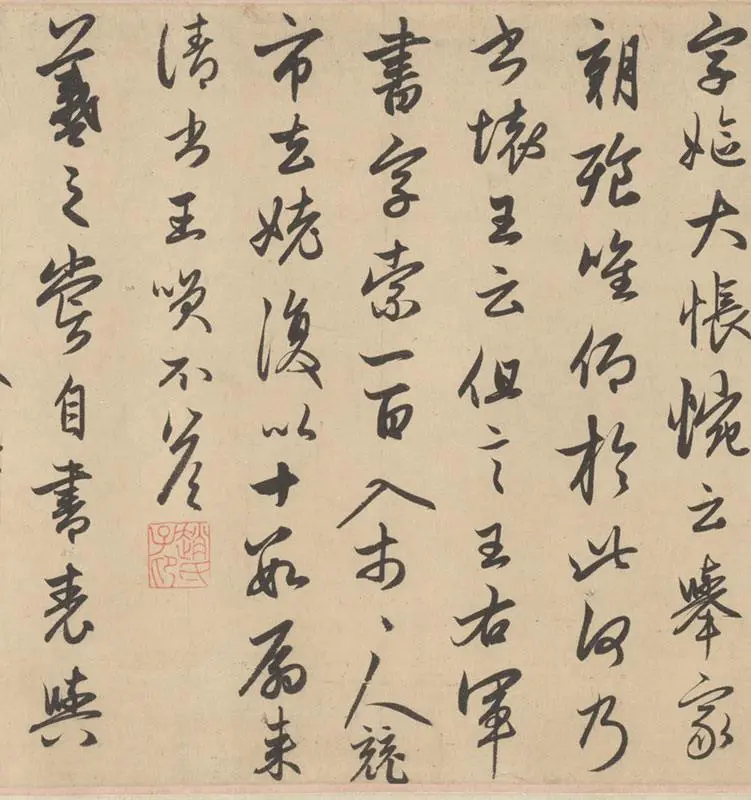 字嫗大悵惋云舉家
朝飱唯仰於此何乃
書壞王云但言王右軍
書字索一百入市〻人競
市去姥復以十數扇來
請書王笑不答
趙氏子昂
羲之嘗自書表與